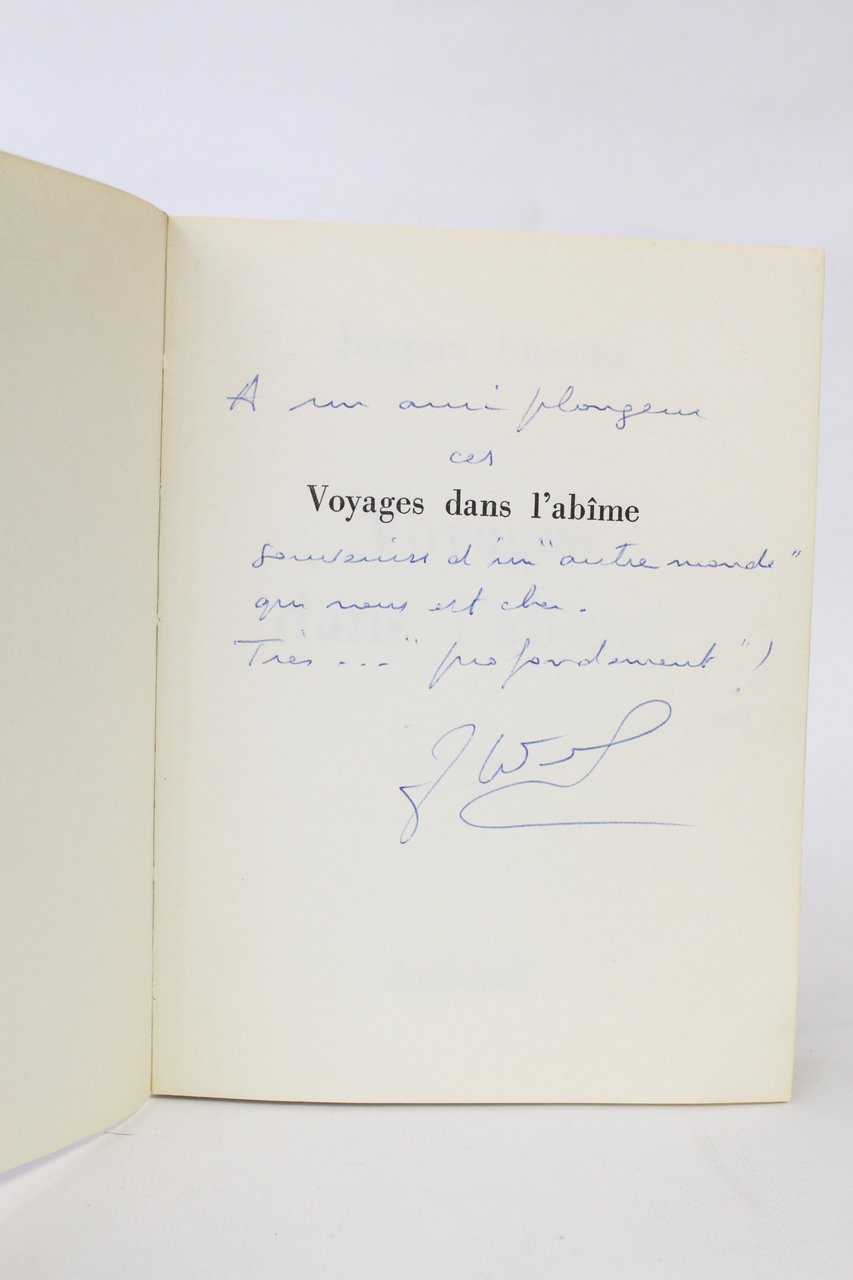 A un ami plongeur
ces
Voyages dans l'abîme
souvenirs d'un "autre monde"
qui nous est cher.
Très ... "profondément" !